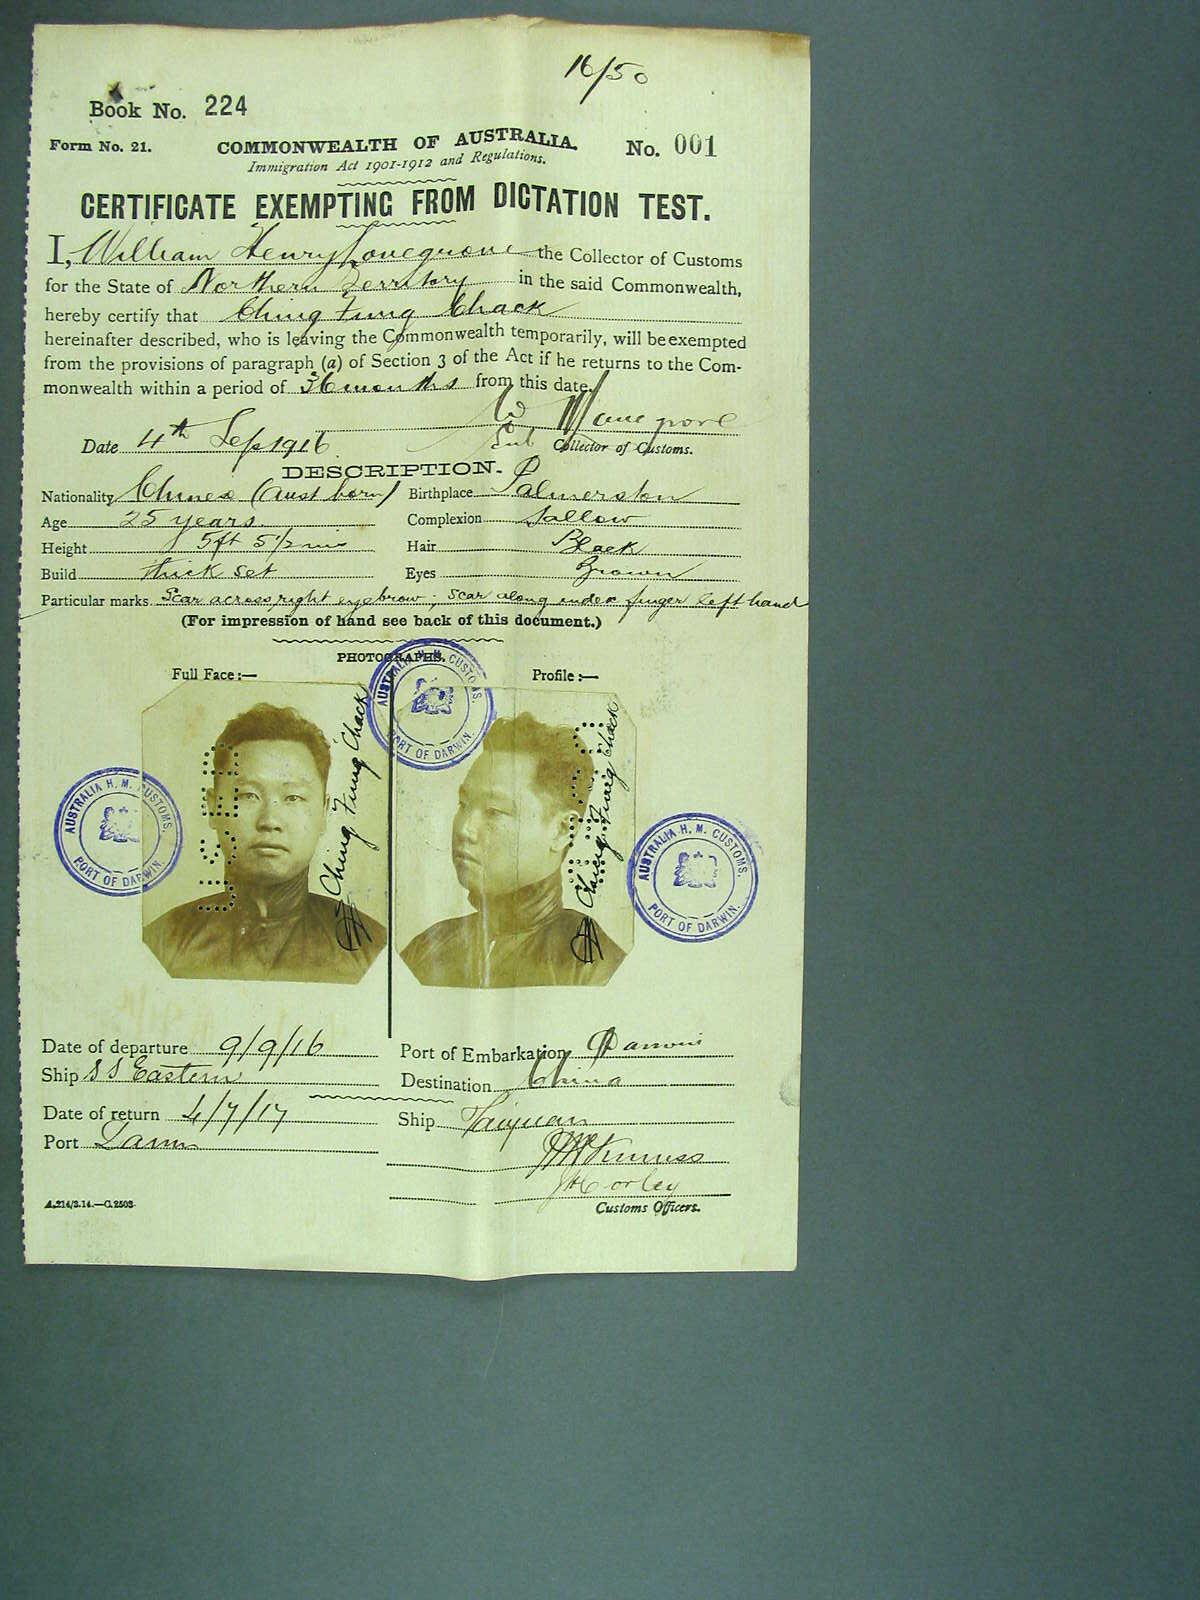 16/50
Book No. 224
Form No. 21. COMMONWEALTH OF AUSTRALIA. No. 001
Immigration Act 1901-1912 and Regulations.
CERTIFICATE EXEMPTING FROM DICTATION TEST.
I, William Henry Lovegrove the Collector of Customs
for the State of Northern Territory in the said Commonwealth,
hereby certify that Ching Fung Chack
hereinafter described, who is leaving the Commonwealth temporarily, will be exempted
from the provisions of paragraph (a) of Section 3 of the Act if he returns to the Com-
monwealth within a period of 36 months from this date.
W Lovegrove
Date 4th Sep 1916 Sub Collector of Customs.
DESCRIPTION.
Nationality Chinese (Aust born) Birthplace Palmerston
Age 25 years. Complexion Sallow
Height 5ft 5 1/2 ins Hair Black
Build thick set Eyes Brown
Particular marks Scar across right eyebrow; scar along index finger left hand
(For impression of hand see back of this document.)
PHOTOGRAPHS.
Full Face:— Profile:—
AUSTRALIA H. M. CUSTOMS.
PORT OF DARWIN.
Ching Fung Chack
Ching Fung Chack
AUSTRALIA H. M. CUSTOMS.
PORT OF DARWIN.
AUSTRALIA H. M. CUSTOMS.
PORT OF DARWIN.
Date of departure 9/9/16 Port of Embarkation Darwin
Ship SS Eastern Destination China
Date of return 4/7/17 Ship Taiyuan
Port Darwin
Customs Officers.
A.214/3.14.—C.2503.